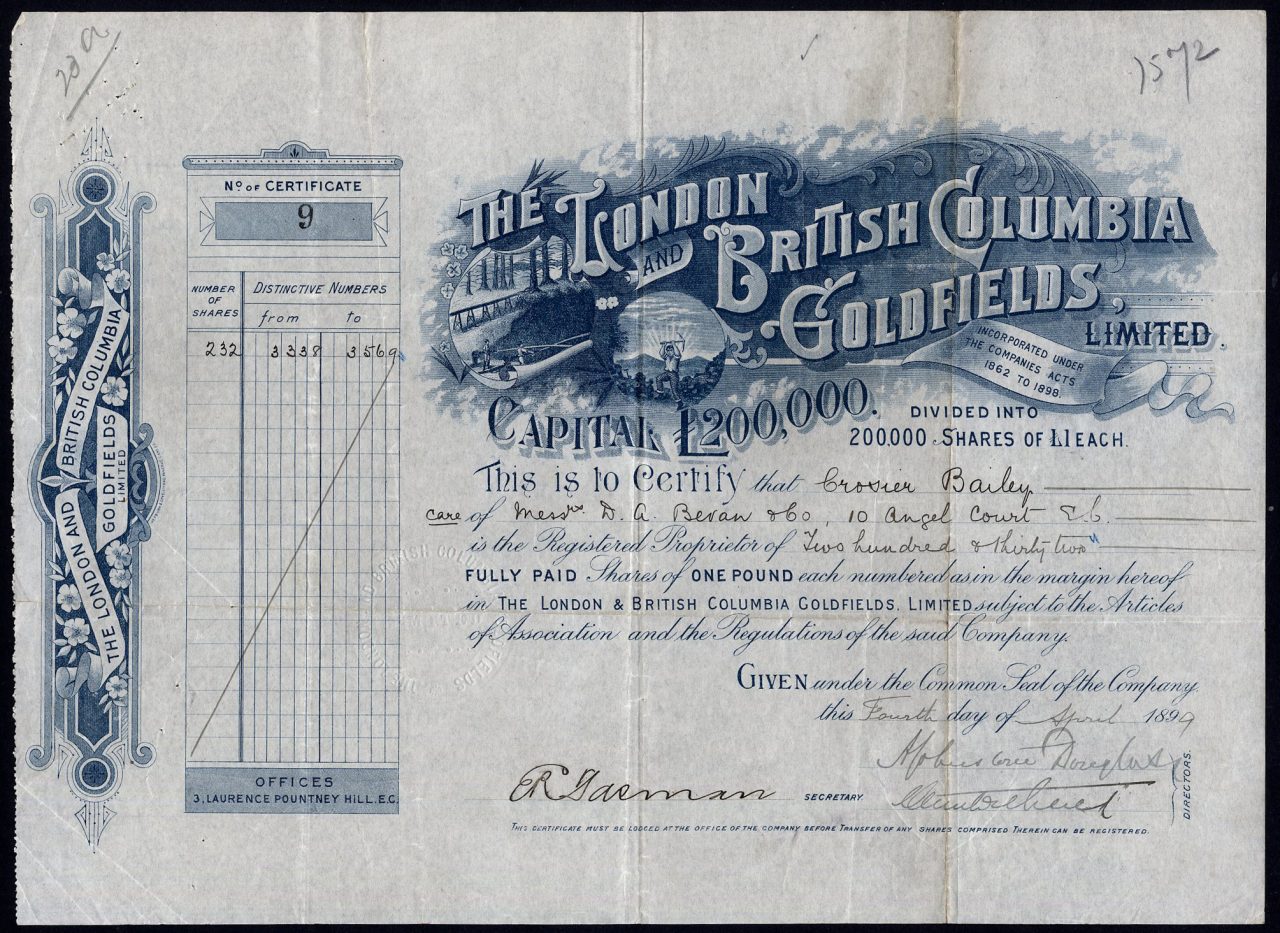 20a
1572
THE LONDON AND BRITISH COLUMBIA GOLDFIELDS LIMITED
No OF CERTIFICATE
9
NUMBER OF SHARES
DISTINCTIVE NUMBERS
from to
232 3338 3569
OFFICES
3, LAURENCE POUNTNEY HILL. E.C.
THE LONDON
AND BRITISH COLUMBIA
GOLDFIELDS,
LIMITED.
INCORPORATED UNDER
THE COMPANIES ACTS
1862 TO 1898.
CAPITAL £200,000. DIVIDED INTO
200,000 SHARES OF £1 EACH.
This is to Certify that Crosier Bailey
care of Messrs D. A. Bevan & Co, 10 Angel Court E.C.
is the Registered Proprietor of Two hundred & thirty two
FULLY PAID Shares of ONE POUND each numbered as in the margin hereof
in THE LONDON & BRITISH COLUMBIA GOLDFIELDS. LIMITED subject to the Articles
of Association and the Regulations of the said Company.
GIVEN under the Common Seal of the Company
this Fourth day of April 1899
Johnstone Douglas
SECRETARY.
DIRECTORS.
THIS CERTIFICATE MUST BE LODGED AT THE OFFICE OF THE COMPANY BEFORE TRANSFER OF ANY SHARES COMPRISED THEREIN CAN BE REGISTERED.